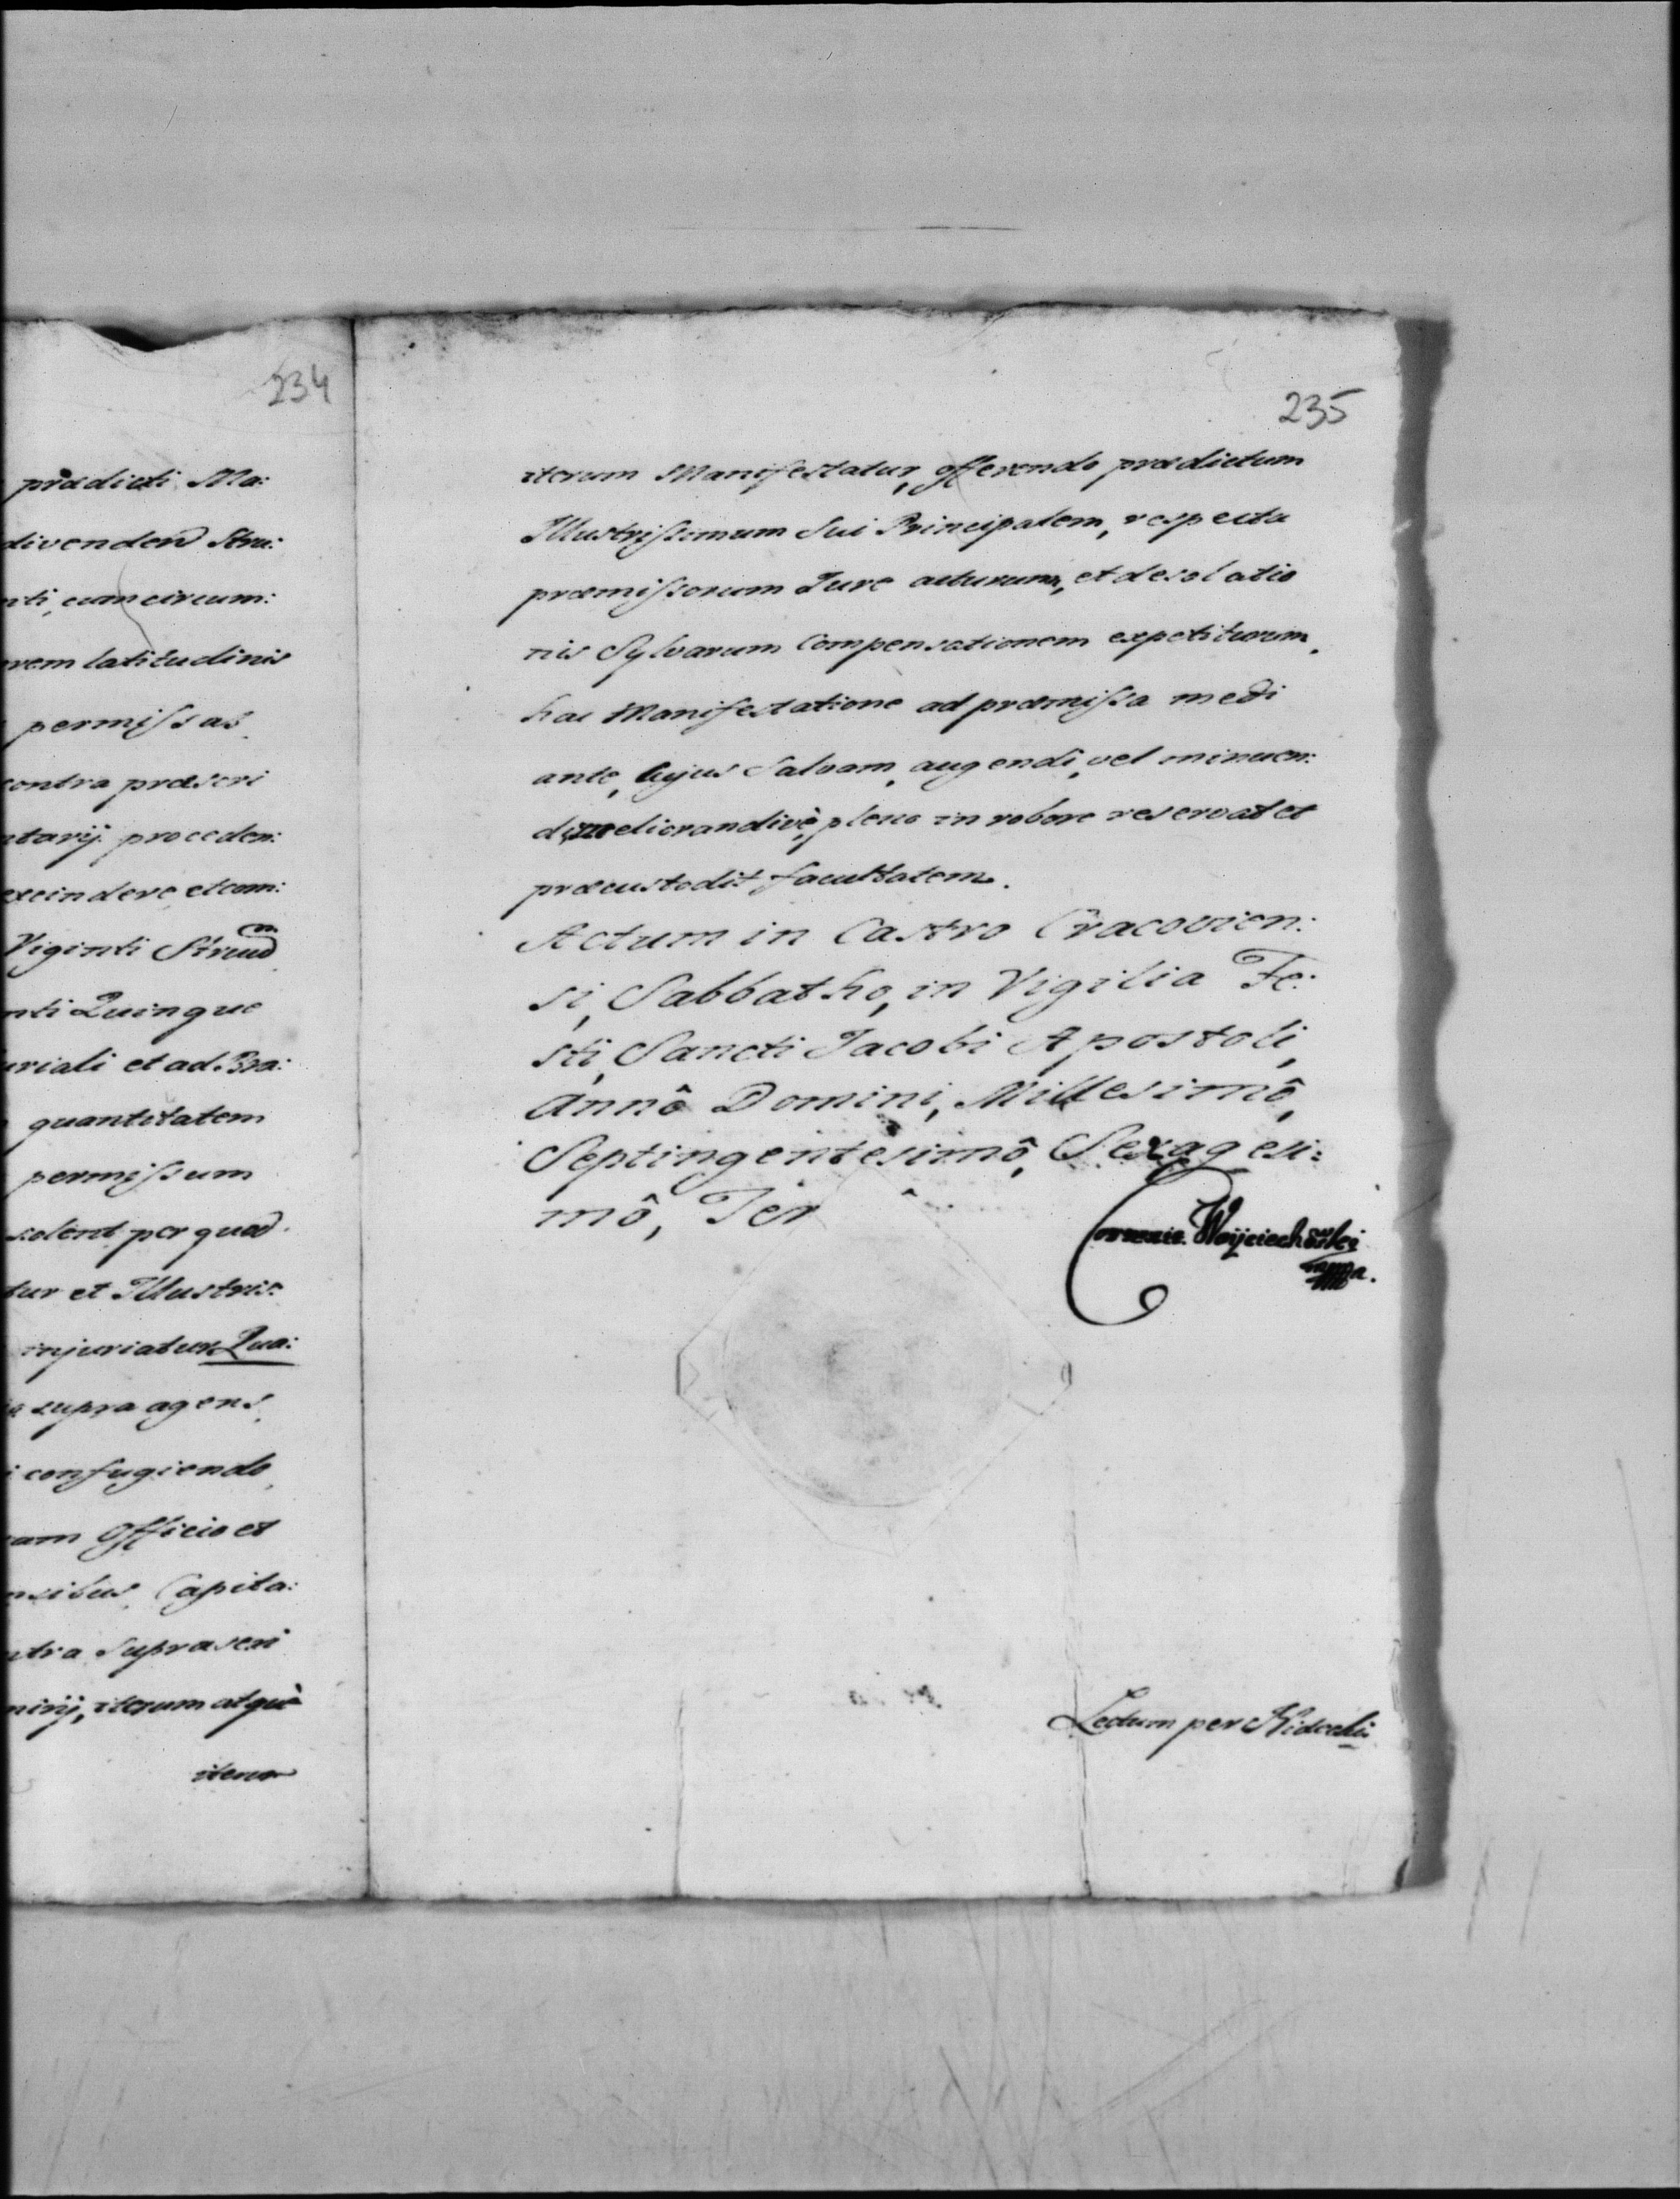 234
prædicti Ma:
divenden Stru:
cum circum:
latitudinis
permissas
contra præscri
proceden:
et com:
Viginti Strued
Quinque
et ad Bra:
quantitatem
permissum
solent per quod
tur et Illustris:
injuriatur Qua:
supra agens
confugiendo
Officio et
Capita:
supra scri
iterum atquè
iterum
235
iterum Manifestatur, offerendo prædictum
Illustrissimum Sui Principalem, respectu
præmissorum Jure acturum, et desolatio
nis Sylvarum Compensationem expetiturum,
hac Manifestatione ad præmissa medi
ante, hujus Salvam, augendi, vel minuen:
di, meliorandivè, pleno in robore reservat et
præcustodit facultatem.
Actum in Castro Cracovien:
si, Sabbatho, in Vigilia Fe:
sti, Sancti Jacobi Apostoli,
Annô Domini, Millesimô,
Septingentesimô, Sexagesi:
mô, Ter
Wojciechowski
Lectum per